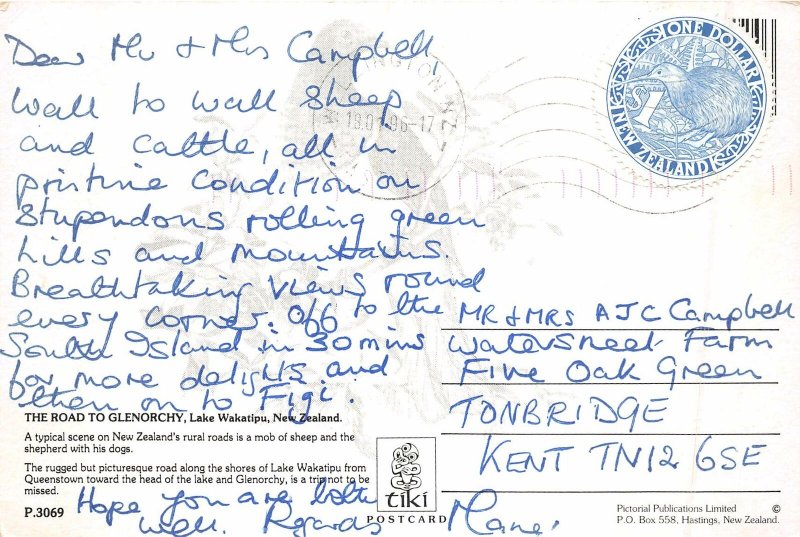 Dear Mr & Mrs Campbell,
wall to wall sheep
and cattle, all in
pristine condition on
stupendous rolling green
hills and mountains.
Breathtaking views round
every corner. Off to the
South Island in 30 mins
for more delights and
then on to Figi.
THE ROAD TO GLENORCHY, Lake Wakatipu, New Zealand.
A typical scene on New Zealand's rural roads is a mob of sheep and the
shepherd with his dogs.
The rugged but picturesque road along the shores of Lake Wakatipu from
Queenstown toward the head of the lake and Glenorchy, is a trip not to be
missed.
P.3069
Hope you are both
well. Regards
ONE DOLLAR
$1
NEW ZEALAND
MR & MRS AJC Campbell
Watersmeet Farm
Five Oak Green
TONBRIDGE
KENT TN12 6SE
tiki
POSTCARD
Pictorial Publications Limited ©
P.O. Box 558, Hastings, New Zealand.